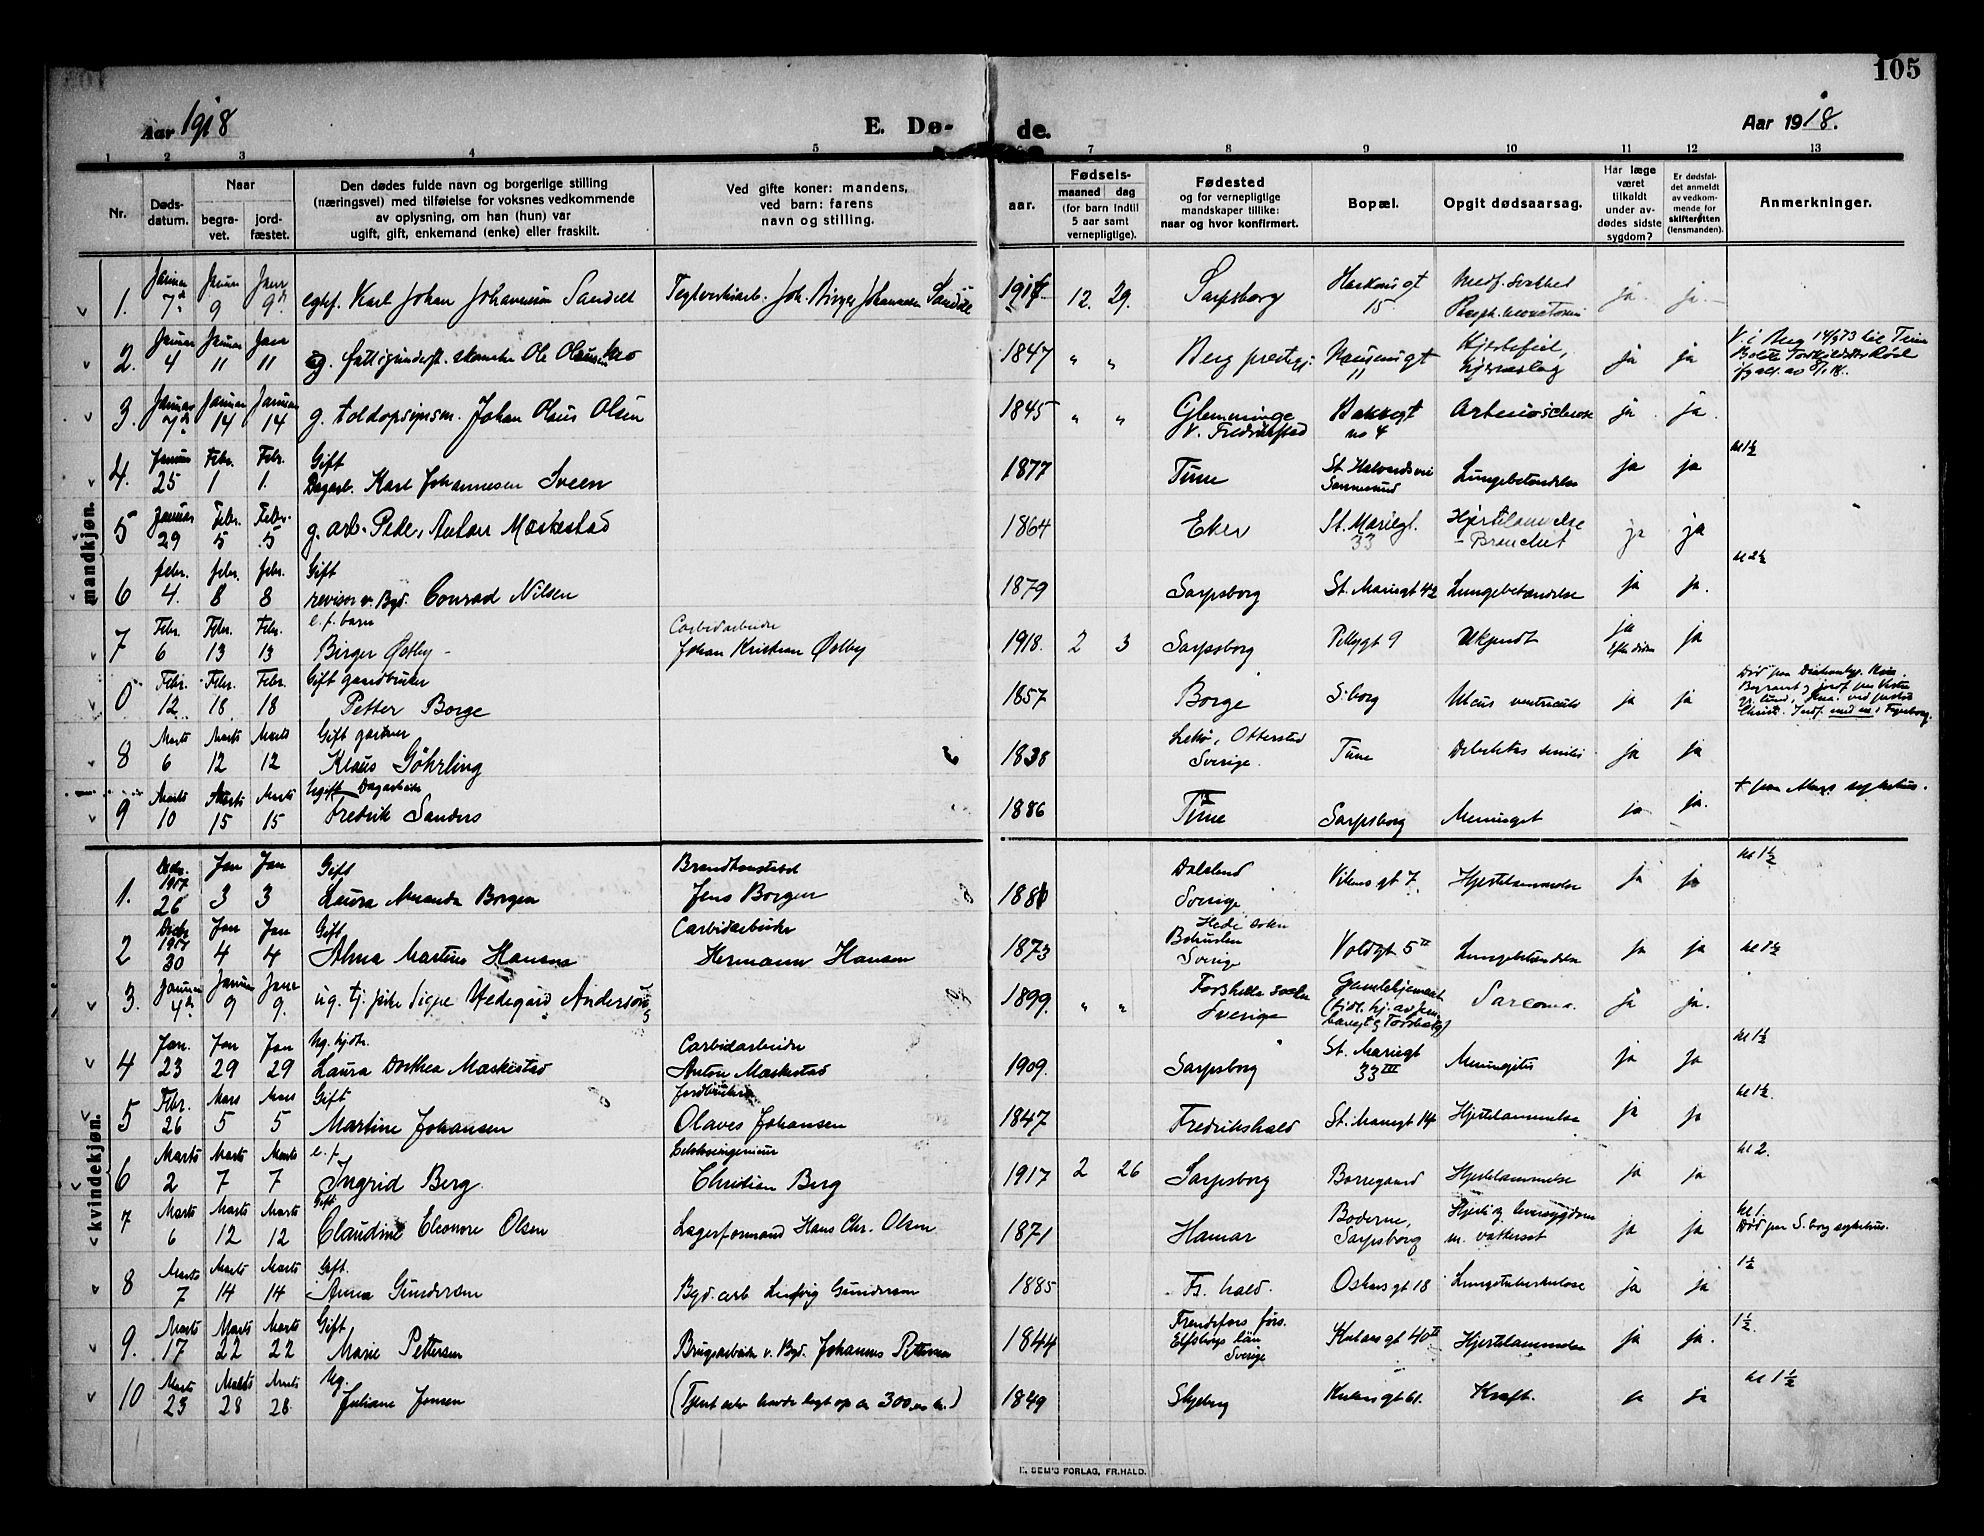 105
Aar 1918
E. Dø-
de.
Aar 1918.
1 2 3 4 5 7 8 9 10 11 12 13
Nr.
Døds-
datum.
Naar
begra-
vet.
jord-
fæstet.
Den dødes fulde navn og borgerlige stilling
(næringsvei) med tilføielse for voksnes vedkommende
av oplysning, om han (hun) var
ugift, gift, enkemand (enke) eller fraskilt.
Ved gifte koner: mandens,
ved barn: farens
navn og stilling.
Fødsels-
aar.
maaned dag
(for barn indtil
5 aar samt
vernepligtige).
Fødested
og for vernepligtige
mandskaper tillike:
naar og hvor konfirmert.
Bopæl.
Opgit dødsaarsag.
Har læge
været
tilkaldt
under av-
dødes sidste
sygdom?
Er dødsfal-
det anmeldt
av vedkom-
mende for
skifteretten
(lensmanden).
Anmerkninger.
mandkjøn.
1. 7 9 9. Karl Johan Johannesen Joh. Birger Johansen 12. 29. Sarpsborg 15. ja. ja.
2. Januar 4 Januar 11 Jan 11 Ole 1847 " " Berg 11 Hjertefeil, ja ja
3. Januar Januar 14 Januar 14 g. toldopsynsm. Johan Olaus Olsen 1845 " " Glemminge
v. Fredrikstad no 4 Arteriosclerose ja. ja.
4. Januar 25 Febr. 1 Febr. 1. Gift
Dagarb. Karl Johannesen Sveen 1877 Tune St. Halvardsvei
Sannesund Lungebetændelse ja ja kl 1½
5 Januar 29 Febr. 5 Febr. 5 g. arb. Peder Anton Mæskestad 1864 Eker St. Mariegt.
33 Hjertelammelse
- Bronchit ja ja
6 febr. 4. febr. 8 febr. 8 Gift
revisor v. Byd. Conrad Nilsen 1879 Sarpsborg St. Mariegt 42 Lungebetændelse ja ja. kl 2½
7 Febr. 6 Febr. 13 Febr. 13 e. f. barn
Birger Østby - Carbidarbeider
Johan Kristian Østby 1918. 2 3 Sarpsborg Pellygt 9 Ukjendt ja ja
0 Febr. 12 Febr. 18 Febr. 18 Gift gaardbruker
Petter Borge 1857 Borge S.borg Ulcus ventriculi ja ja
8 Marts 6 Marts 12 Marts 12 Gift gartner
Klaus Göhrling 1838 Otterstad
Sverige. Tune ja ja
9 Marts 10 Marts 15 Marts 15 Ugift Dagarbeider
Fredrik Sanders 1886 Tune Sarpsborg Meninget ja ja. + paa sykehus.
kvindekjøn.
1. Decbr.
1917
26 Jan 3 Jan 3 Gift
Laura Amanda Borgen Brandkonstabel
Jens Borgen Dalsland
Sverige Vikensgt 7. Hjertelammelse ja ja kl 1½
2 Decbr
1917
30 Jan 4 Jan 4 Gift
Alma Martine Hansen Carbidarbeider
Hermann Hansen 1873 Hede sokn
Bohuslen
Sverige Voldgt 5 II Lungebetændelse ja ja kl 1½
3. Januar 4 Januar 9 9. ug. tj. pike Signe Hedegard Anderson 1899. " " sokn
Sverige Sarcoma. ja ja.
4 Jan. 23 Jan 29 Jan 29 Ug. hjdtr.
Laura Dorthea Mæskestad Carbidarbeider
Anton Mæskestad 1909. Sarpsborg St. Mariegt
33 III Meningitis ja ja kl 1½
5 Febr. 26 Mars 5 Mars 5 Gift
Martine Johansen Jordbruker
Olaves Johansen 1847 Fredrikshald St. Mariegt 14 Hjertelammelse ja ja kl 1½.
6 Marts 2 Marts 7 Marts 7 e. f.
Ingrid Berg. Elektroingeniør
Christian Berg 1917 2 26 Sarpsborg Borregaard Hjertelammelse ja ja kl 2.
7 Marts 6 Marts 12 Marts 12 Gift
Claudine Eleonore Olsen Lagerformand Hans Chr. Olsen 1871 Hamar Boderne,
Sarpsborg Hjerte og leversygdom
m. vattersot ja ja kl 1.
Død paa S.borg sykehus.
8 Marts 7 Marts 14 Marts 14 Gift.
Anna Gundersen Byd. arb Ludvig Gundersen 1885 Fr. hald. Oskarsgt 18 Lungetuberkulose ja ja 1½
9. Marts 17 Marts 22 Marts 22 Gift
Marie Pettersen Brugsarbeider v. Byd. Johannes Pettersen 1844 Frendefors förs.
Elfsborgs län
Sverige Kulaasgt 40 II Hjertelammelse ja ja. 1½.
10 Marts 23 Marts 28 Marts 28 Ug.
Juliane Jensen 1849 Skjeberg Kulaasgt 61. Kræft. ja ja kl 1½
E. SEM'S FORLAG, FR.HALD.